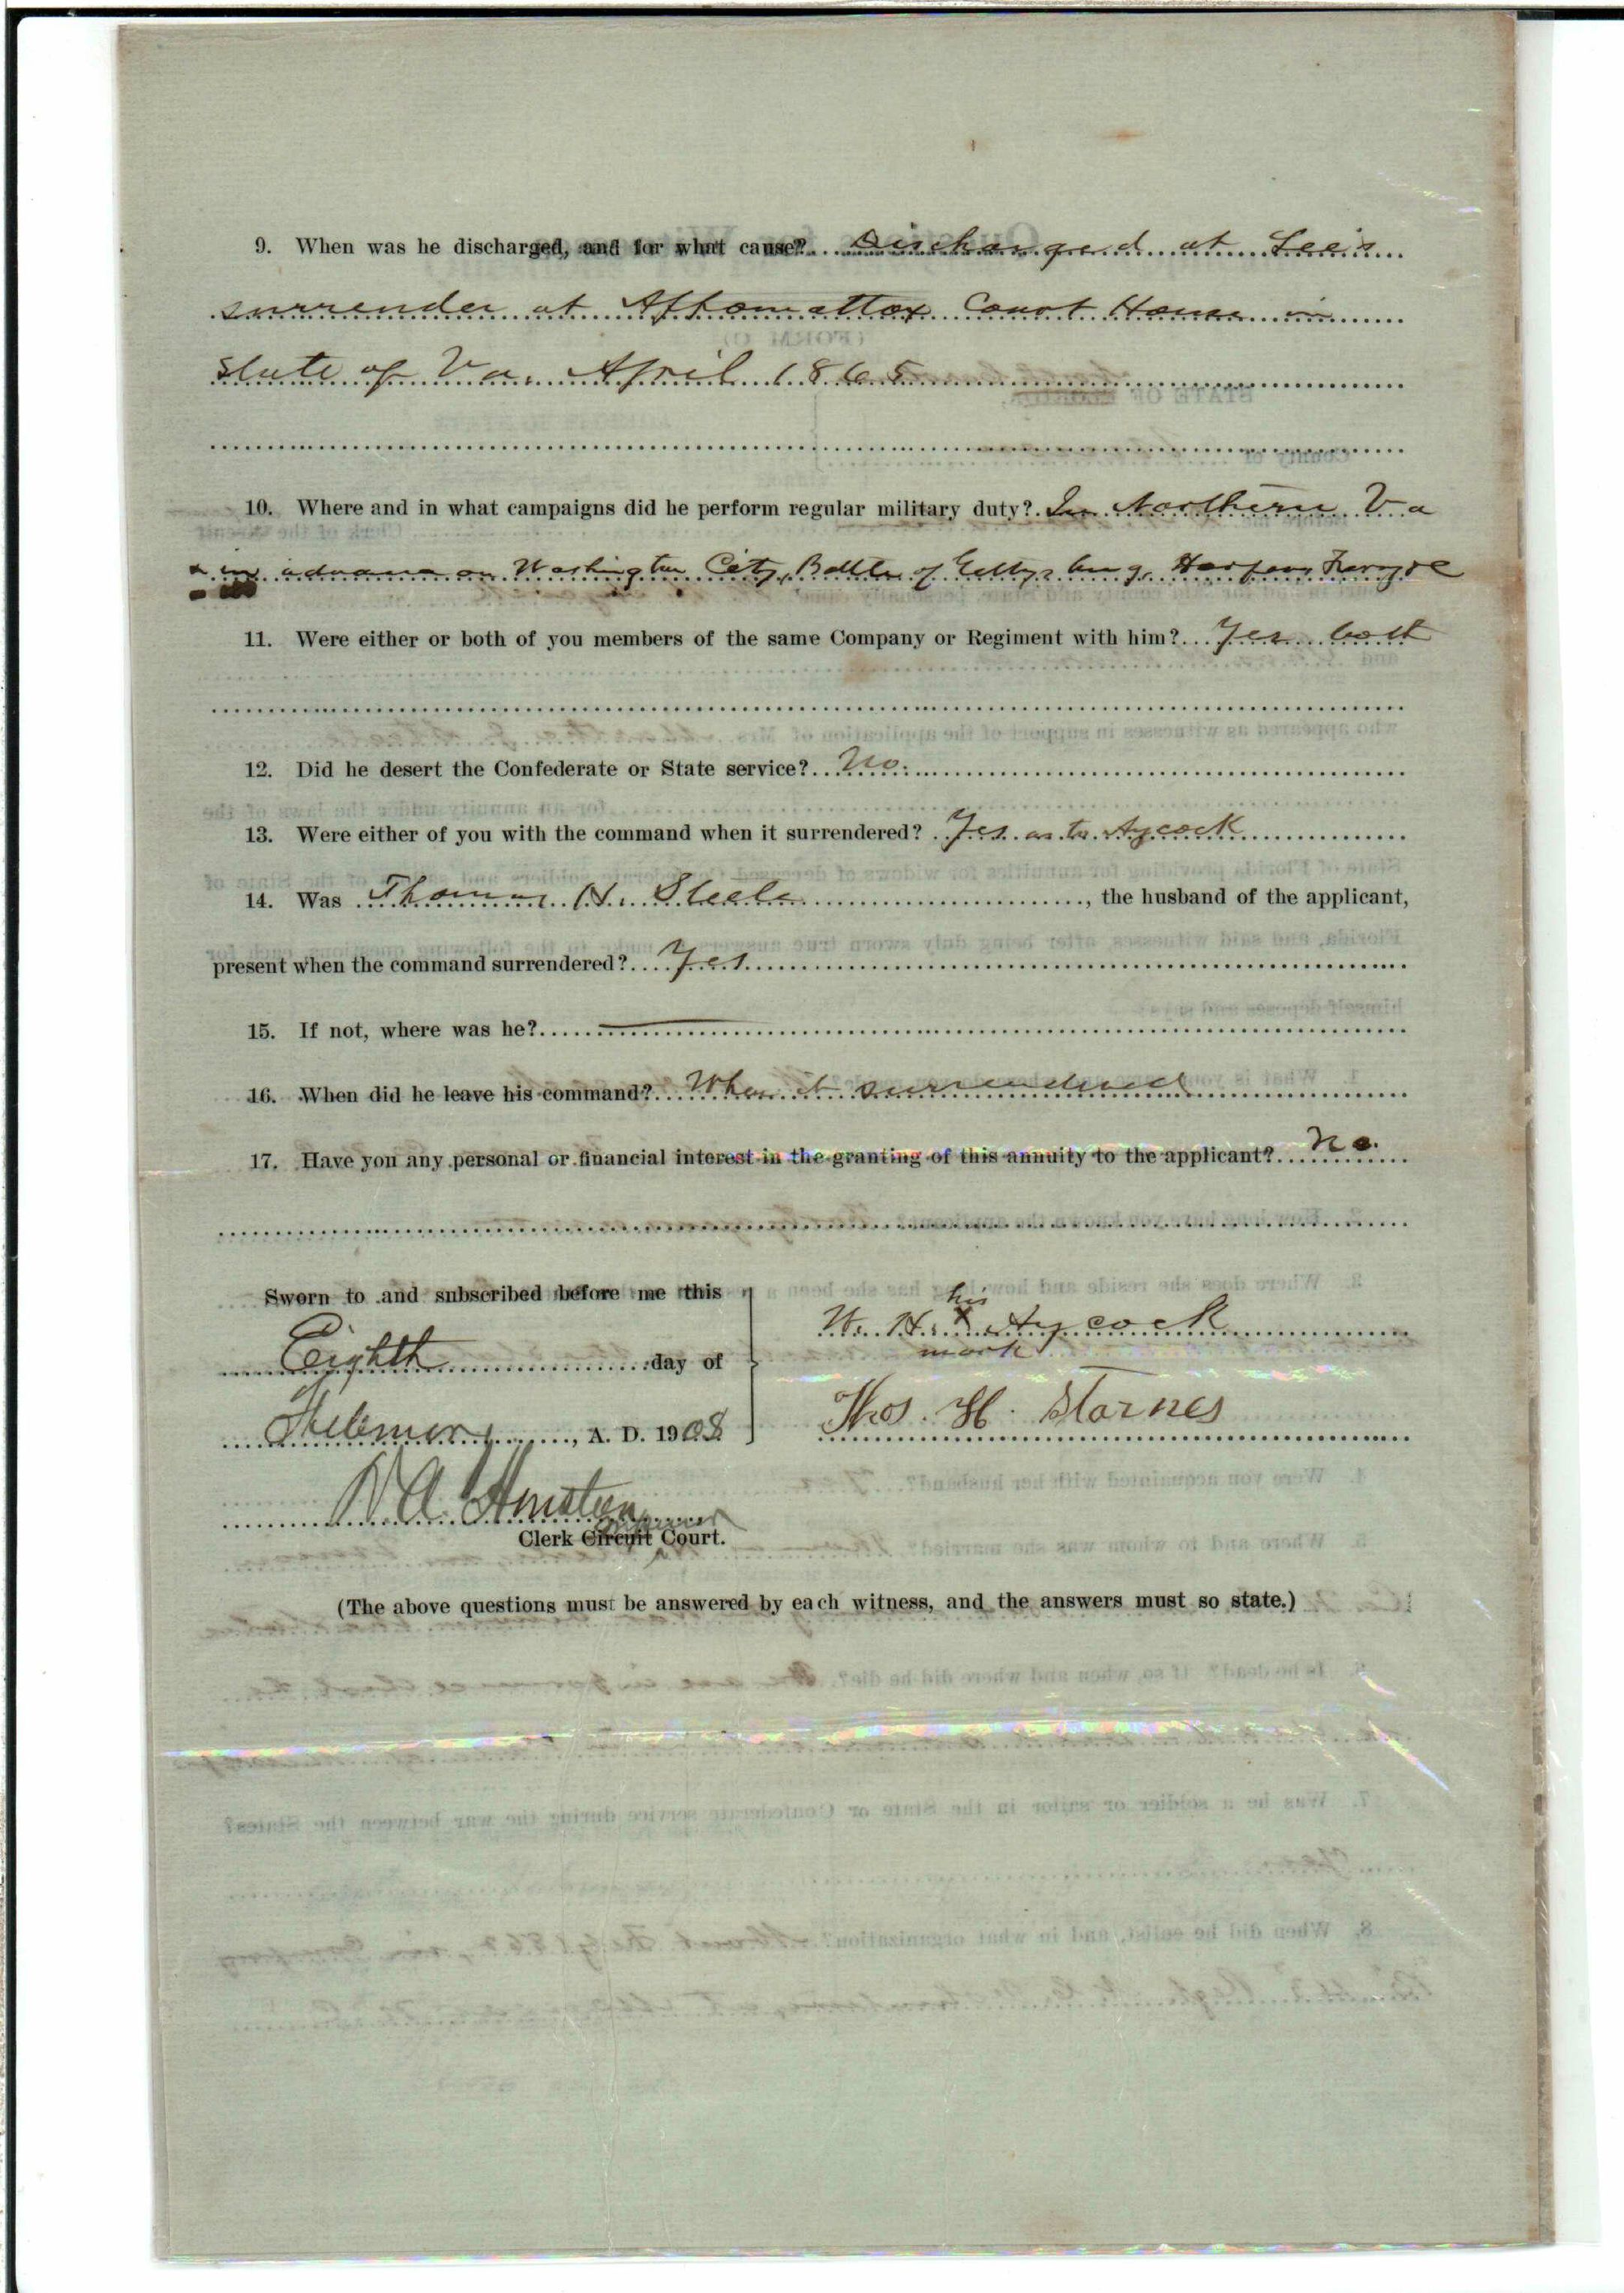 9. When was he discharged, and for what cause? Discharged at Lee's
surrender at Appomattox Court House in
State of Va. April 1865
10. Where and in what campaigns did he perform regular military duty? In Northern Va
& in advance on Washington City, Battle of Gettysburg, Harpers Ferry &c
11. Were either or both of you members of the same Company or Regiment with him? Yes both
12. Did he desert the Confederate or State service? No.
13. Were either of you with the command when it surrendered? Yes as to Aycock
14. Was Thomas H. Steele, the husband of the applicant,
present when the command surrendered? Yes
15. If not, where was he?
16. When did he leave his command? When it surrendered
17. Have you any personal or financial interest in the granting of this annuity to the applicant? No.
Sworn to and subscribed before me this
Eighth day of
February, A. D. 1908
his
W. H. X Aycock
mark
Thos. H. Starnes
Superior
Clerk Circuit Court.
(The above questions must be answered by each witness, and the answers must so state.)